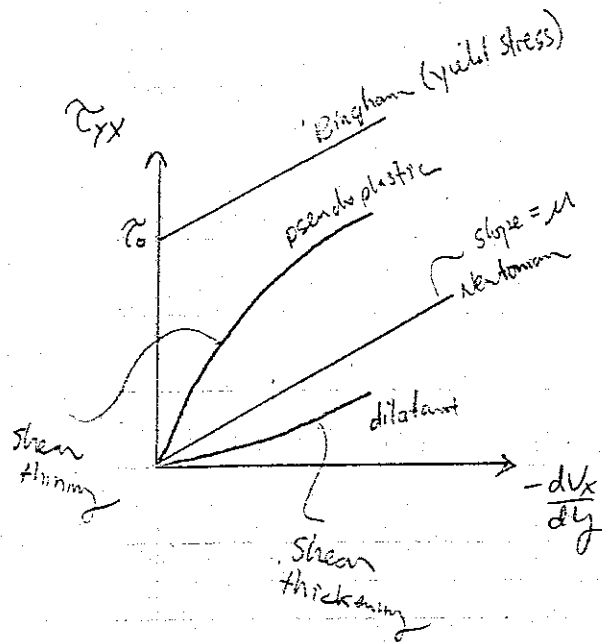 Bingham (yield stress)
τyx
pseudoplastic
τ₀
slope = μ
Newtonian
dilatant
shear
thining
-dVx
dy
shear
thickening